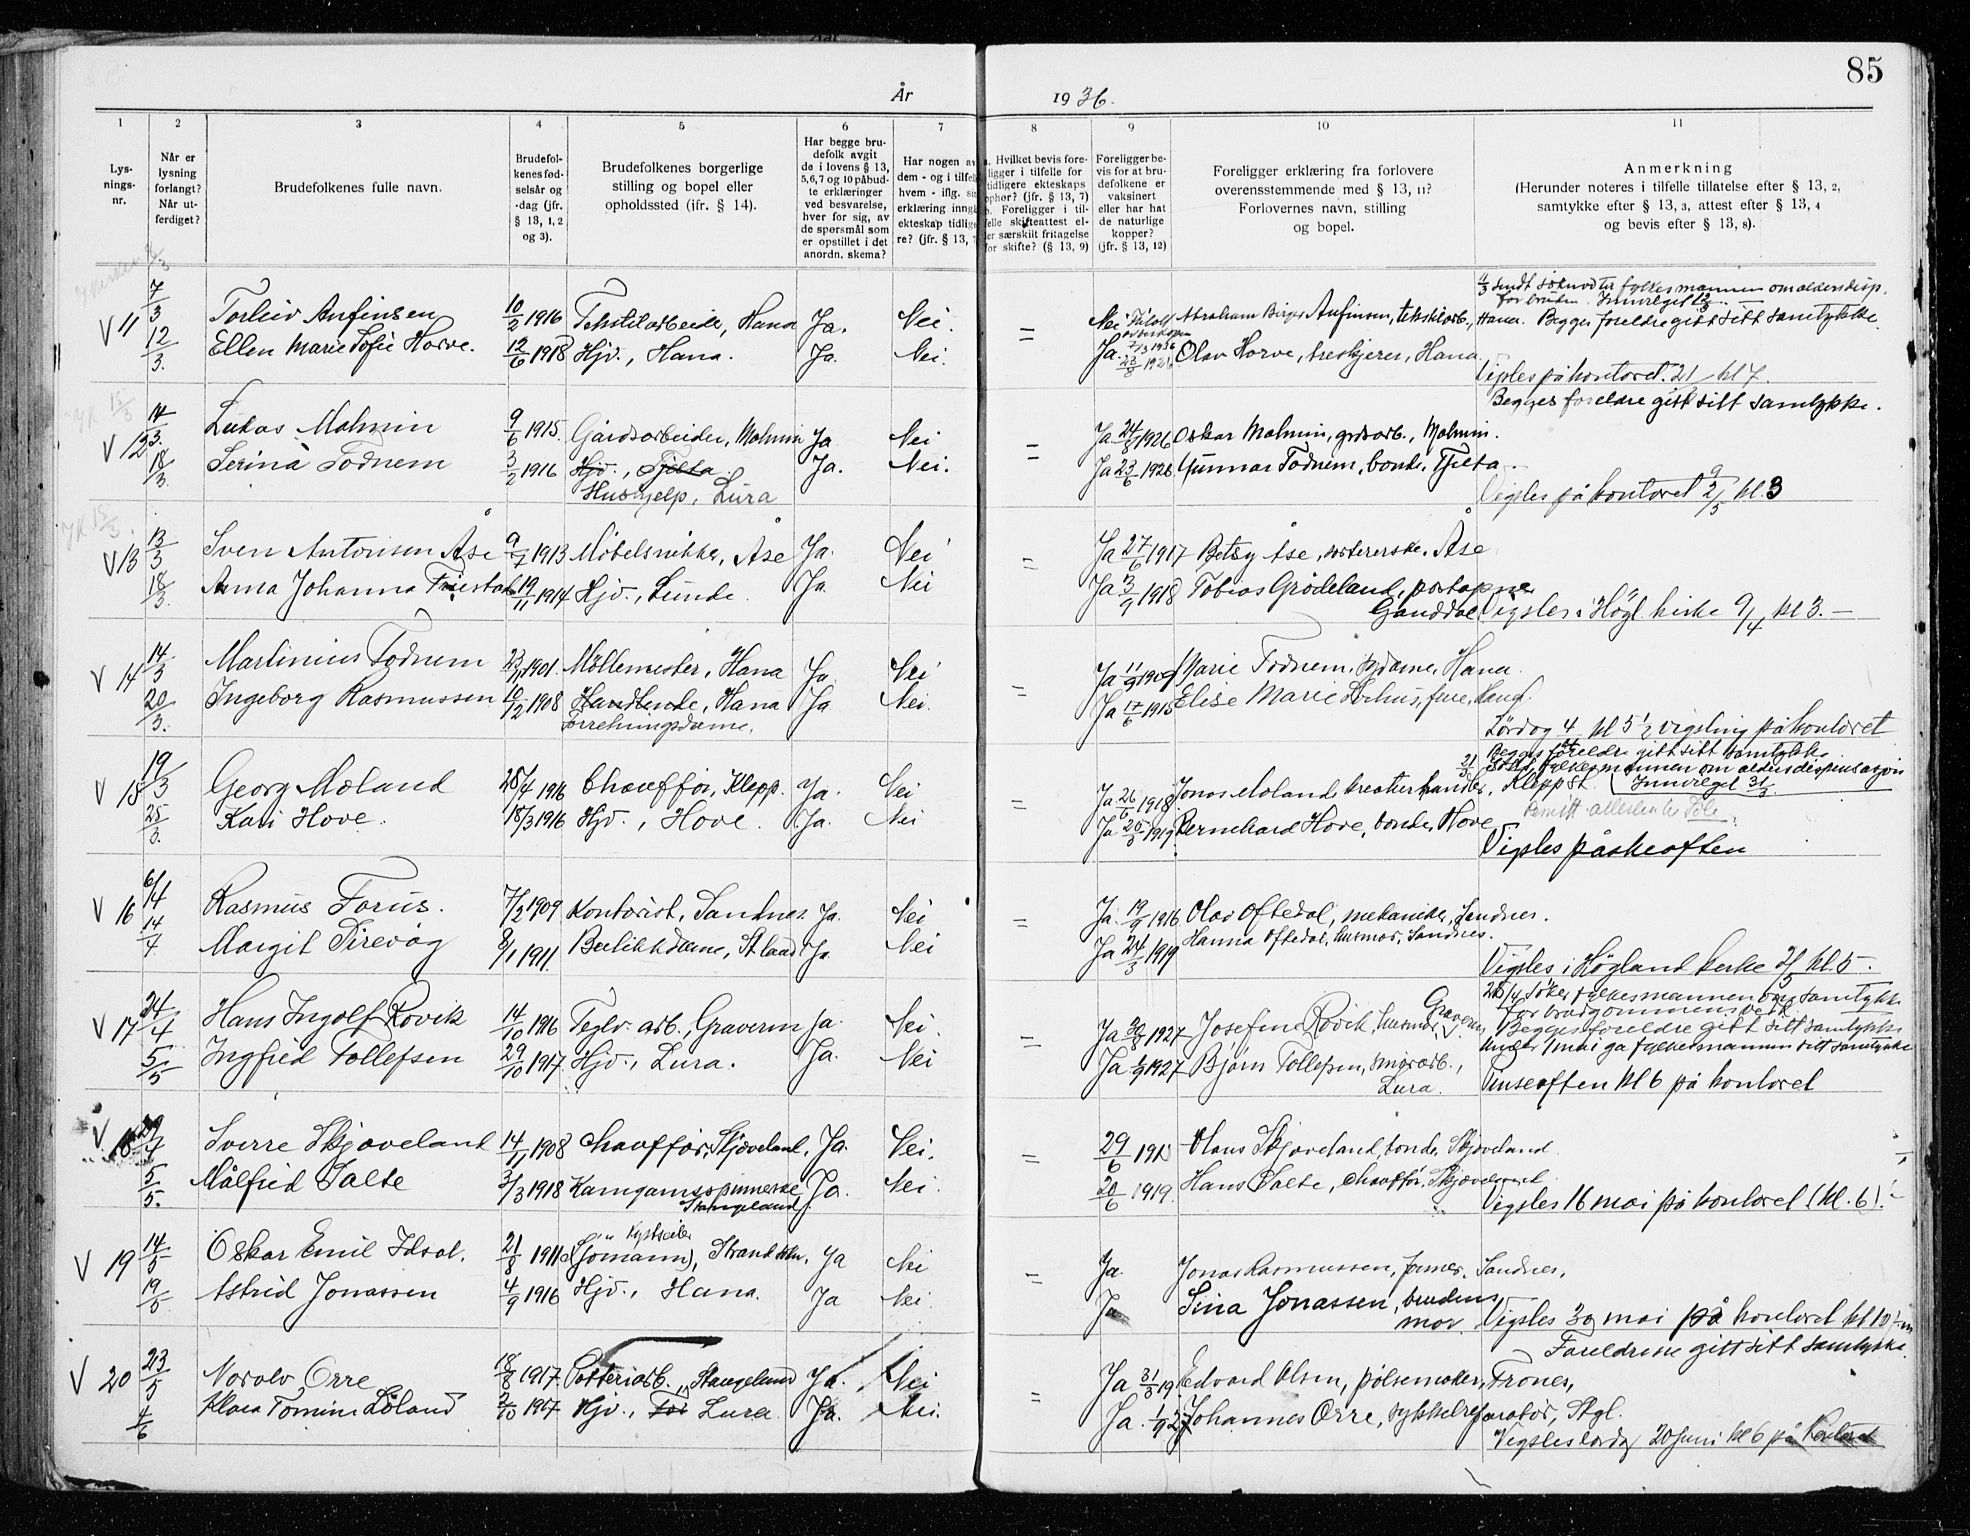 85
År 1936.
1 2 3 4 5 6 7 8 9 10 11
Lys-
nings-
nr.
Når er
lysning
forlangt?
Når ut-
ferdiget?
Brudefolkenes fulle navn.
Brudefol-
kenes fød-
selsår og
-dag (jfr.
§ 13, 1, 2
og 3).
Brudefolkenes borgerlige
stilling og bopel eller
opholdssted (ifr. § 14).
Har begge bru-
defolk avgit
de i lovens § 13,
5,6,7 og 10 påbud-
te erklæringer
ved besvarelse,
hver for sig, av
de spørsmål som
er opstillet i det
anordn. skema?
Har nogen av
dem - og i tilfelle
hvem - iflg. sin
erklæring inngått
ekteskap tidlige-
re? (jfr. § 13, 7
a. Hvilket bevis fore-
ligger i tilfelle for
tidligere ekteskaps
ophør? (jfr. § 13, 7)
b. Foreligger i til-
felle skifteattest el-
ler særskilt fritagelse
for skifte? (§ 13, 9)
Foreligger be-
vis for at bru-
defolkene er
vaksinert
eller har hat
de naturlige
kopper?
(jfr. § 13, 12)
Foreligger erklæring fra forlovere
overensstemmende med § 13, 11?
Forlovernes navn, stilling
og bopel.
Anmerkning
(Herunder noteres i tilfelle tillatelse efter § 13, 2,
samtykke efter § 13, 3, attest efter § 13, 4
og bevis efter § 13, 8).
4/3 sendt søknad til fylkesmannen om aldersdisp.
for bruden. Innvilget 12/3.
V 11 7/3 Torleiv Anfinsen 10/2 1916 Tekstilarbeide, Hana Ja. Nei. = Nei Abraham Birger Anfinsen, tekstilarb., Hana. Begges foreldre gitt sitt samtykke.
12/3. Ellen Marie Sofie Horve. 12/6 1918 Hjv., Hana. Ja. Nei. Ja. Olav Horve, treskjerer, Hana
Vigsles på kontoret. 21/ kl 7.
Begges foreldre gitt sitt samtykke.
V 12 14/3. Lukas Malmin 9/6 1915 Gårdsarbeider, Malmin Ja Nei = Ja 24/8 1926 Oskar Malmin, grdsarb., Malmin.
18/3. Serina Todnem 3/2 1916 Hjv., Tjelta Ja. Nei. Ja 23/6 1928 Gunnar Todnem, bonde, Tjelta.
Hushjelp, Lura
Vigsles på kontoret 2/5 kl. 3
V 13 13/3 Sven Antonsen Åse 9/7 1913 Møbelsnikker, Åse Ja. Nei = Ja 27/6 1917 Betsy Åse, sortererske, Åse
18/3. Anna Johanna Friestad 19/11 1914 Hjv., Lunde. Ja. Nei Ja 3/9 1918 Tobias Grødeland, postapner
Ganddal Vigsles i Høgl. kirke 9/4 kl 3. —
V 14 14/3 Martinius Todnem 23/11 1901. Møllemester, Hana Ja. Nei = Ja 11/9 1909 Marie Todnem, Hana.
20/3. Ingeborg Rasmussen 10/2 1908 Handlende, Hana Ja Nei. Ja 17/6 1915 Elise Marie
Forretningsdame.
Lördag 4 kl 5½ vigsling på kontoret
Begges foreldre gitt sitt samtykke
V 15 19/3 Georg Moland 28/4 1916 Chauffør, Klepp. Ja. Nei Ja 26/6 1918. Jonas Moland kreaturhandler, Klepp st. Innvilget 31/3.
25/3. Kari Hove. 18/3 1916 Hjv., Hove. Ja. Nei Ja 1919. Bernhard Hove, bonde, Hove
Vigsles påskeaften
V 16 6/4 Rasmus Forus. 7/2 1909 Kontorist, Sandnes Ja. Nei = Ja. 19/9 1916 Olav Oftedal, mekaniker, Sandnes.
14/4. Margit Sirevåg 8/1 1911. Butikkdame, St.land Ja. Nei Ja 24/3 1919 Hanna Oftedal, husmor, Sandnes.
Vigsles i Høyland kirke kl. 5.
V 17 24/4 Hans Ingolf Rovik 14/10 1916 Teglv.arb., Graveren Ja. Nei. = Ja 1927 Josefine Rovik, husmor, Graveren Begges foreldre gitt sitt samtykke
5/5 Ingfrid Tollefsen 29/10 1917. Hjv., Lura. Ja. Nei Ja 1/9 1927 Bjørn Tollefsen,
Lura.
Under 1 mai ga fylkesmannen sitt samtykke
Pinseaften kl 6 på kontoret
V 18 Sverre Skjæveland 14/11 1908 Chauffør, Skjæveland. Ja. Nei. = 29/6 Olaus Skjæveland, bonde, Skjæveland
5/5. Målfrid Salte 3/3 1918 Kamgarnsspinnerske Ja. Nei. 20/6 1919. Hans Salte, chauffør, Skjæveland
Stangeland
Vigsles 16 mai på kontoret (kl. 6).
V 19 14/5 Oskar Emil Idsal. 21/8 1911 (sjømann), Strand Ja Nei = Ja. Jonas Rasmussen, former, Sandnes,
19/5. Astrid Jonassen 4/9 1916 Hjv., Hana. Ja Nei. Ja Sina Jonassen, brudens
mor.
Vigsles 30 mai på kontoret kl
Foreldrene gitt sitt samtykke.
V 20 23/5 Norolv Orre 18/8 1917. Potteriarb., Stangeland Ja. Nei = Ja 31/8 19. Edvard Olsen, pølsemaker, Trones,
4/6 Klara Tomine Løland 2/10 1917 Hjv., Lura Ja. Nei. Ja. 1/9 27 Johannes Orre, sykkelreparatør, Stgl.
Vigsles lørdag 20 juni kl 6 på kontoret